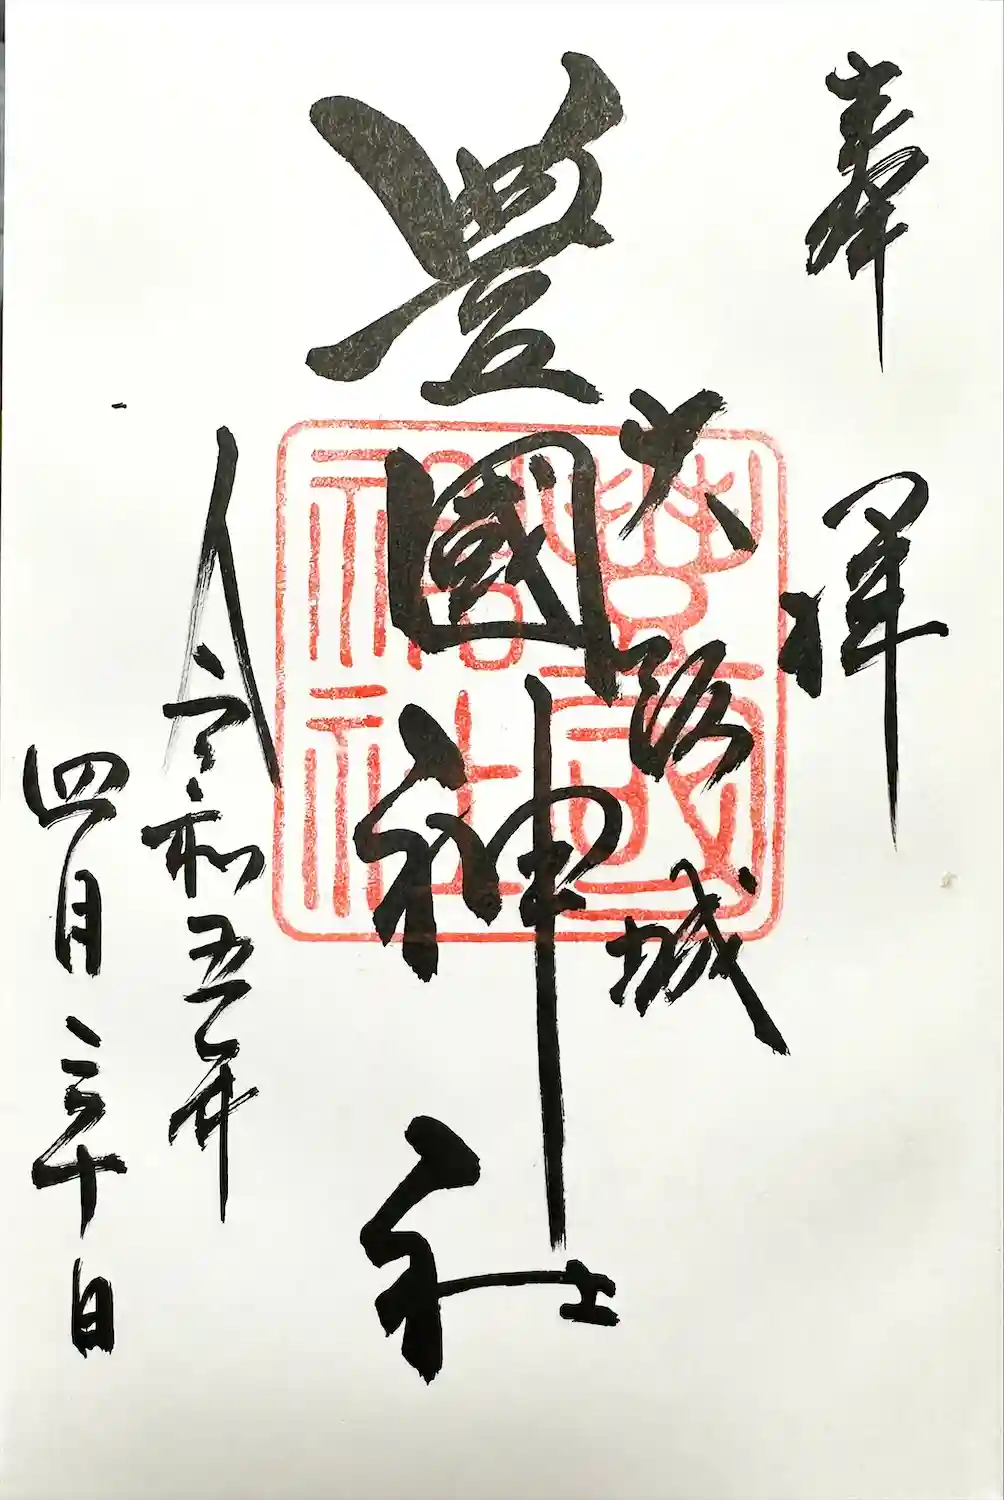 奉拝
大阪城
豊國神社
令和五年
四月三十日
豊国神社